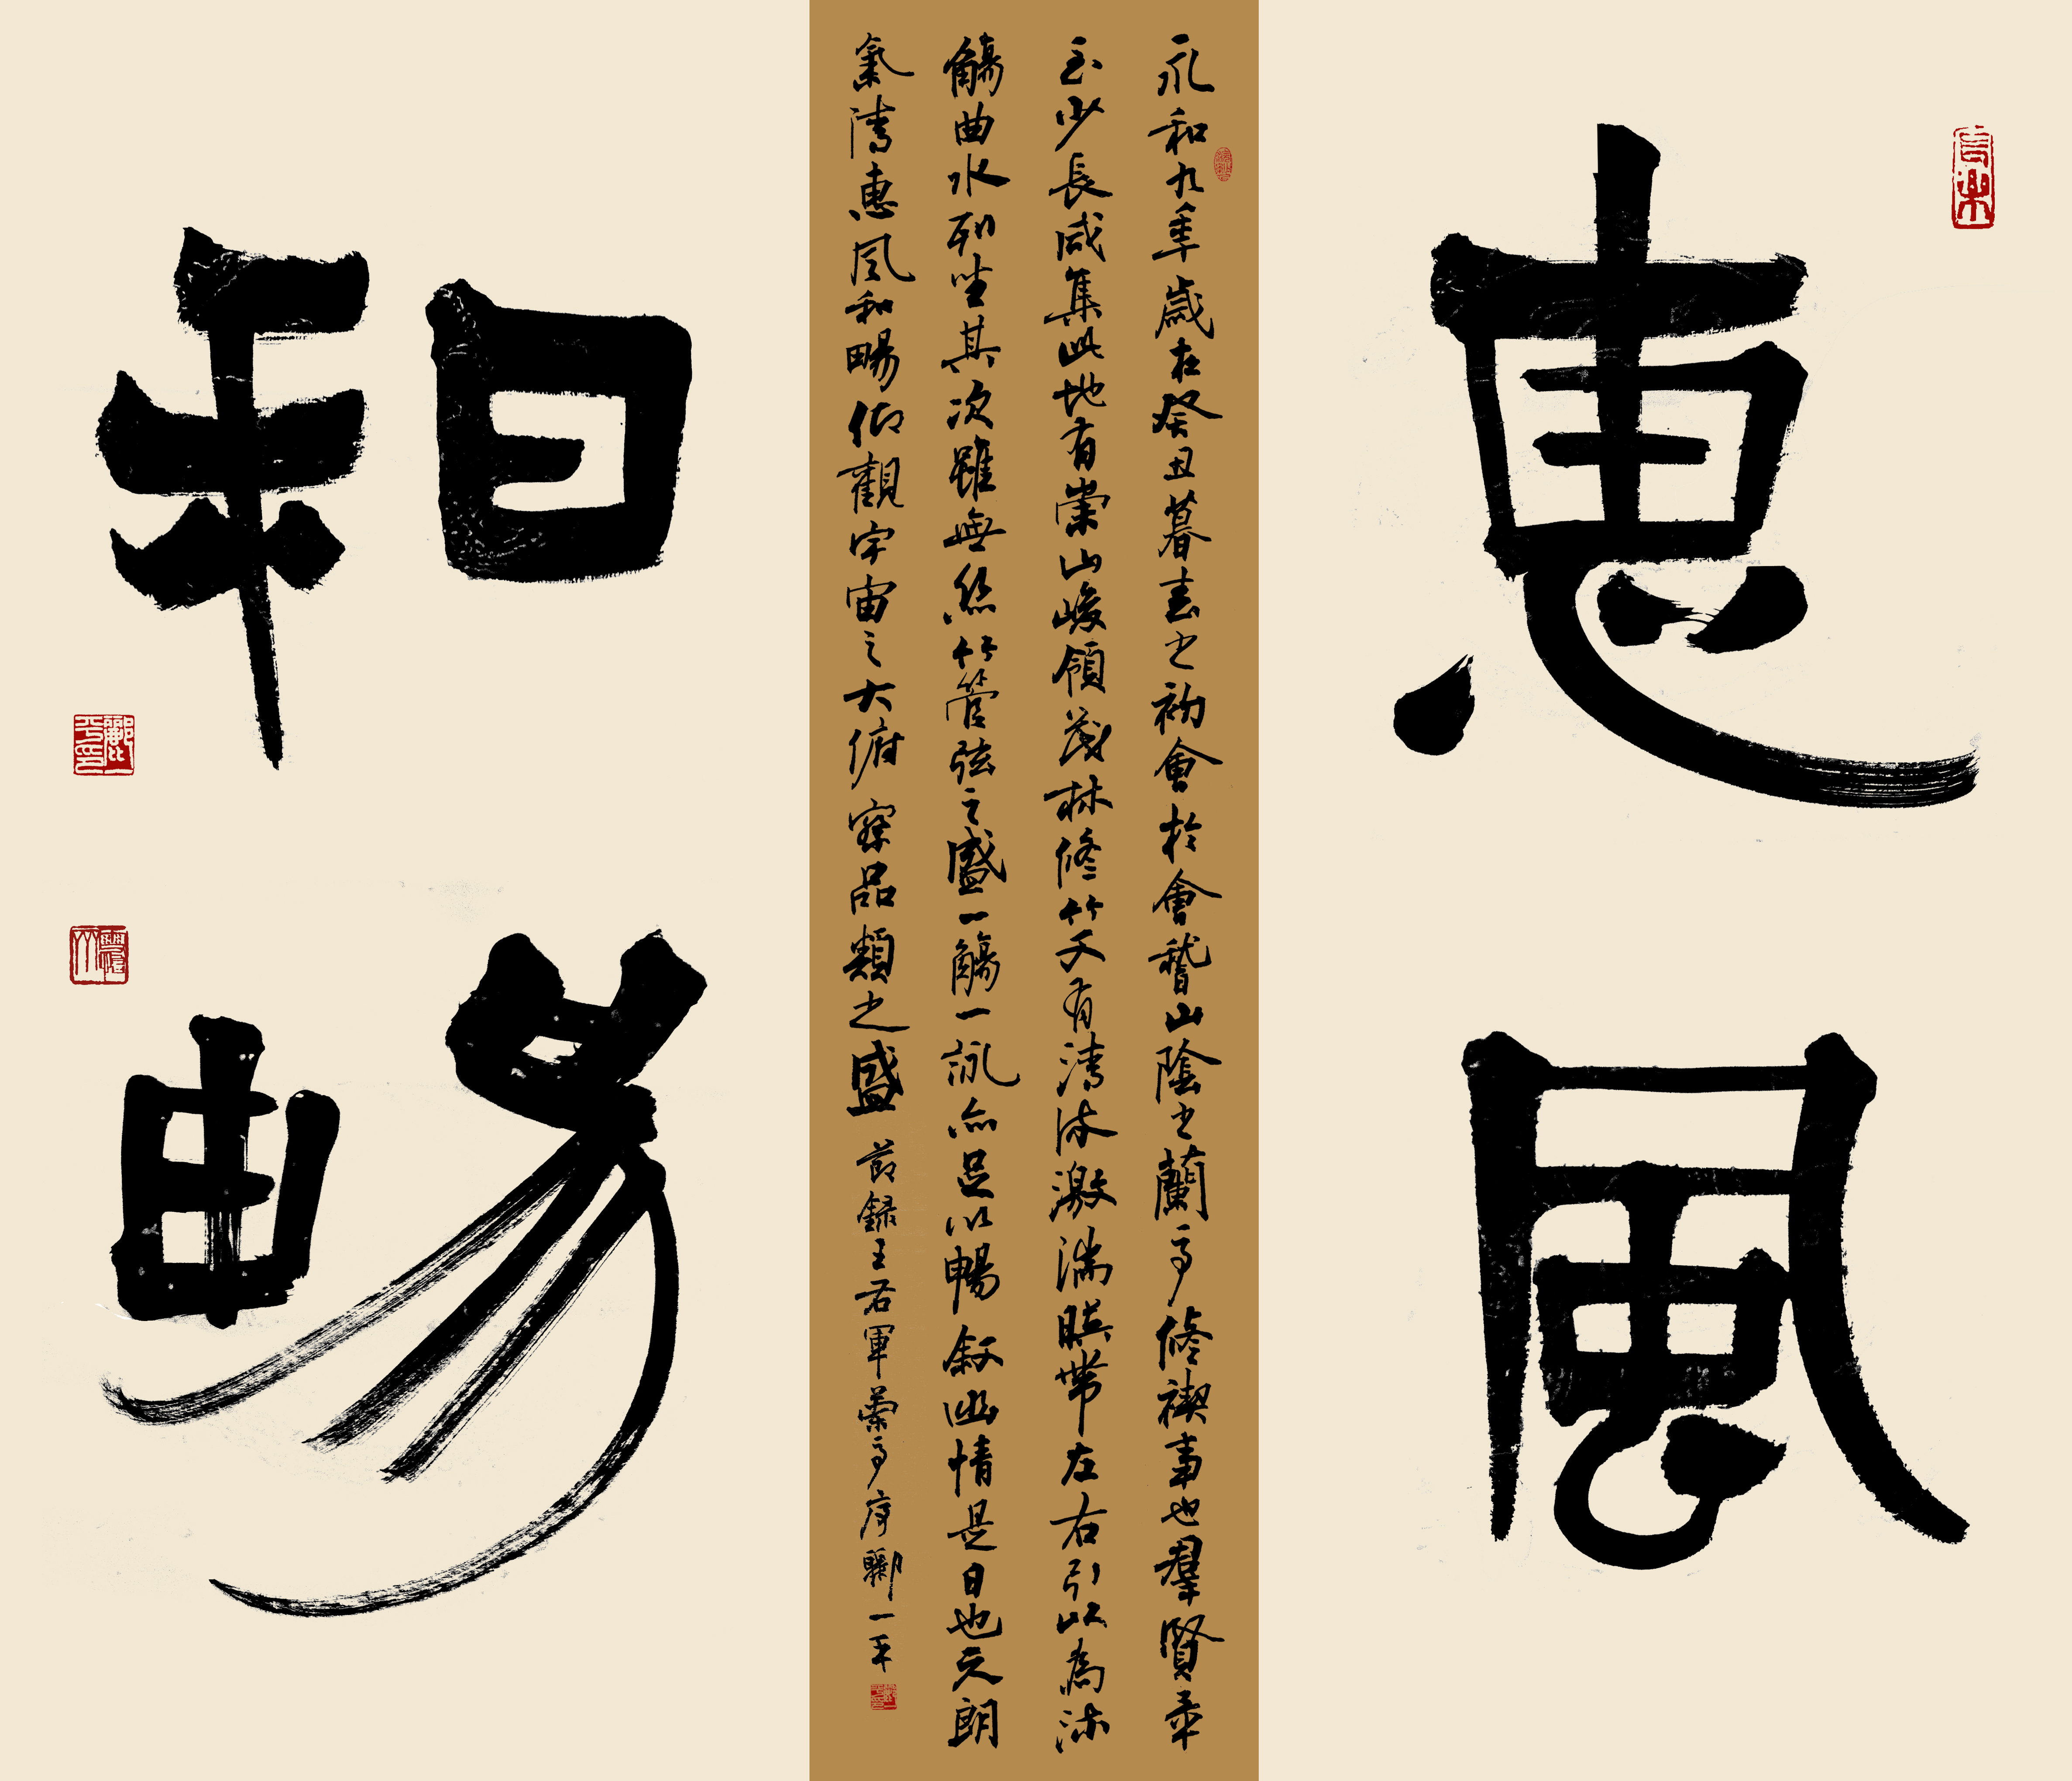 惠風
永和九年歲在癸丑暮春之初會於會稽山陰之蘭亭修禊事也羣賢畢
至少長咸集此地有崇山峻領茂林修竹又有清流激湍暎帶左右引以為流
觴曲水列坐其次雖無絲竹管弦之盛一觴一詠亦足以暢敘幽情是日也天朗
氣清惠風和暢仰觀宇宙之大俯察品類之盛 節録王右軍蘭亭序 酈一平
和暢
酈一平印